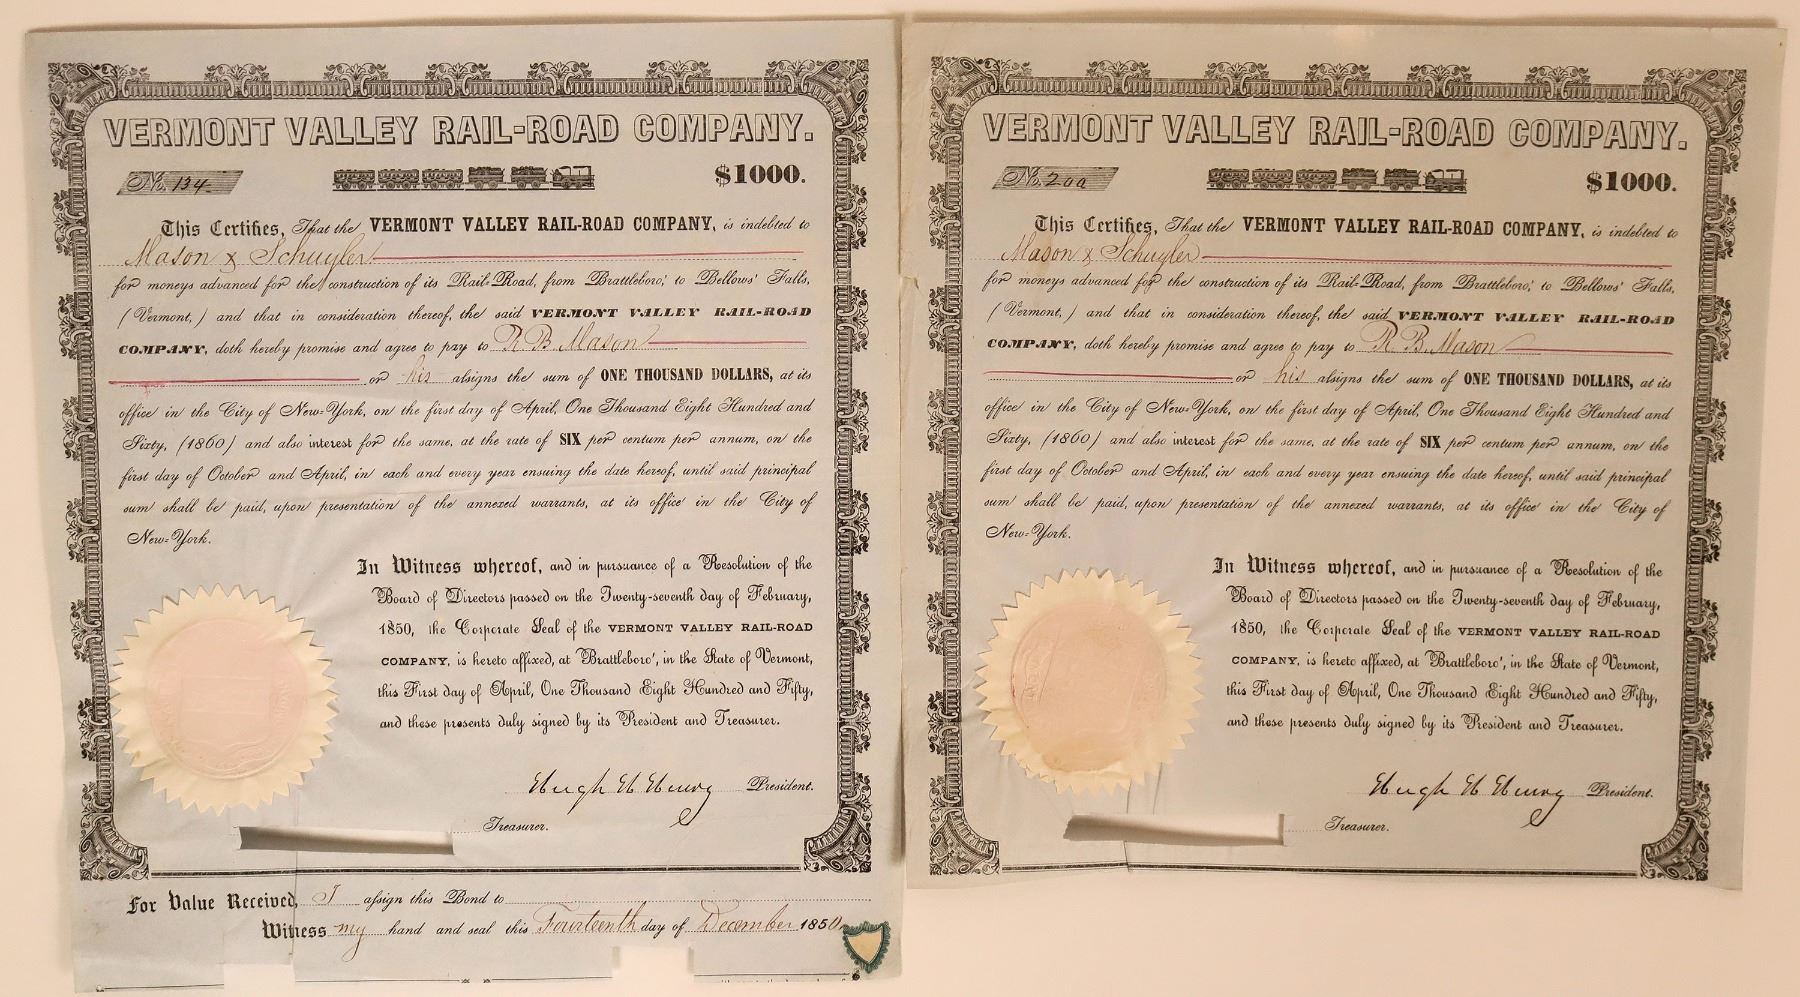 VERMONT VALLEY RAIL-ROAD COMPANY.
No. 134
$1000.
This Certifies, That the VERMONT VALLEY RAIL-ROAD COMPANY, is indebted to
Mason & Schuyler
for moneys advanced for the construction of its Rail-Road, from Brattleboro', to Bellows' Falls,
(Vermont,) and that in consideration thereof, the said VERMONT VALLEY RAIL-ROAD
COMPANY, doth hereby promise and agree to pay to R B Mason
or his assigns the sum of ONE THOUSAND DOLLARS, at its
office in the City of New-York, on the first day of April, One Thousand Eight Hundred and
Sixty, (1860) and also interest for the same, at the rate of SIX per centum per annum, on the
first day of October and April, in each and every year ensuing the date hereof, until said principal
sum shall be paid, upon presentation of the annexed warrants, at its office in the City of
New-York.
In Witness whereof, and in pursuance of a Resolution of the
Board of Directors passed on the Twenty-seventh day of February,
1850, the Corporate Seal of the VERMONT VALLEY RAIL-ROAD
COMPANY, is hereto affixed, at Brattleboro', in the State of Vermont,
this First day of April, One Thousand Eight Hundred and Fifty,
and these presents duly signed by its President and Treasurer.
Hugh H Henry President.
Treasurer.
For Value Received, I assign this Bond to
Witness my hand and seal this Fourteenth day of December 1850
VERMONT VALLEY RAIL-ROAD COMPANY.
No. 200
$1000.
This Certifies, That the VERMONT VALLEY RAIL-ROAD COMPANY, is indebted to
Mason & Schuyler
for moneys advanced for the construction of its Rail-Road, from Brattleboro', to Bellows' Falls,
(Vermont,) and that in consideration thereof, the said VERMONT VALLEY RAIL-ROAD
COMPANY, doth hereby promise and agree to pay to R B Mason
or his assigns the sum of ONE THOUSAND DOLLARS, at its
office in the City of New-York, on the first day of April, One Thousand Eight Hundred and
Sixty, (1860) and also interest for the same, at the rate of SIX per centum per annum, on the
first day of October and April, in each and every year ensuing the date hereof, until said principal
sum shall be paid, upon presentation of the annexed warrants, at its office in the City of
New-York.
In Witness whereof, and in pursuance of a Resolution of the
Board of Directors passed on the Twenty-seventh day of February,
1850, the Corporate Seal of the VERMONT VALLEY RAIL-ROAD
COMPANY, is hereto affixed, at Brattleboro', in the State of Vermont,
this First day of April, One Thousand Eight Hundred and Fifty,
and these presents duly signed by its President and Treasurer.
Hugh H Henry President.
Treasurer.